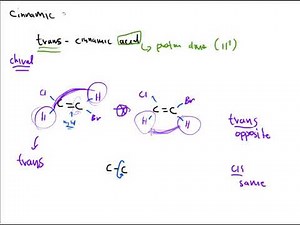 Cinnamic
trans - cinnamic acid → proton donor (H⁺)
chiral
Cl H Cl Br
C = C C = C
H Br H H
trans
trans
opposite
C - C
cis
same